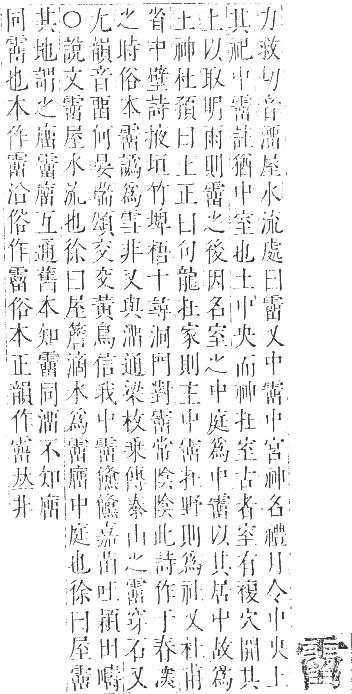 霤
力救切音溜屋水流處曰霤又中霤中宮神名禮月令中央土
其祀中霤註猶中室也土中央而神在室古者室有複穴開其
上以取明雨則霤之後因名室之中庭爲中霤以其居中故爲
土神杜預曰土正曰句龍在家則主中霤在野則爲社又杜甫
省中壁詩掖垣竹埤梧十尋洞門對霤常陰陰此詩作于春漢
之時俗本霤譌爲雪非又與溜通梁枚乗傳泰山之霤穿石又
尤韻音畱何晏瑞頌交交黃鳥信我中霤儵儵嘉苗吐穎田疇
○說文霤屋水流也徐曰屋簷滴水爲霤廇中庭也徐曰屋霤
其地謂之廇霤廇互通舊本知霤同溜不知廇
同霤也本作霤㳂俗作霤俗本正韻作霤𠀤非